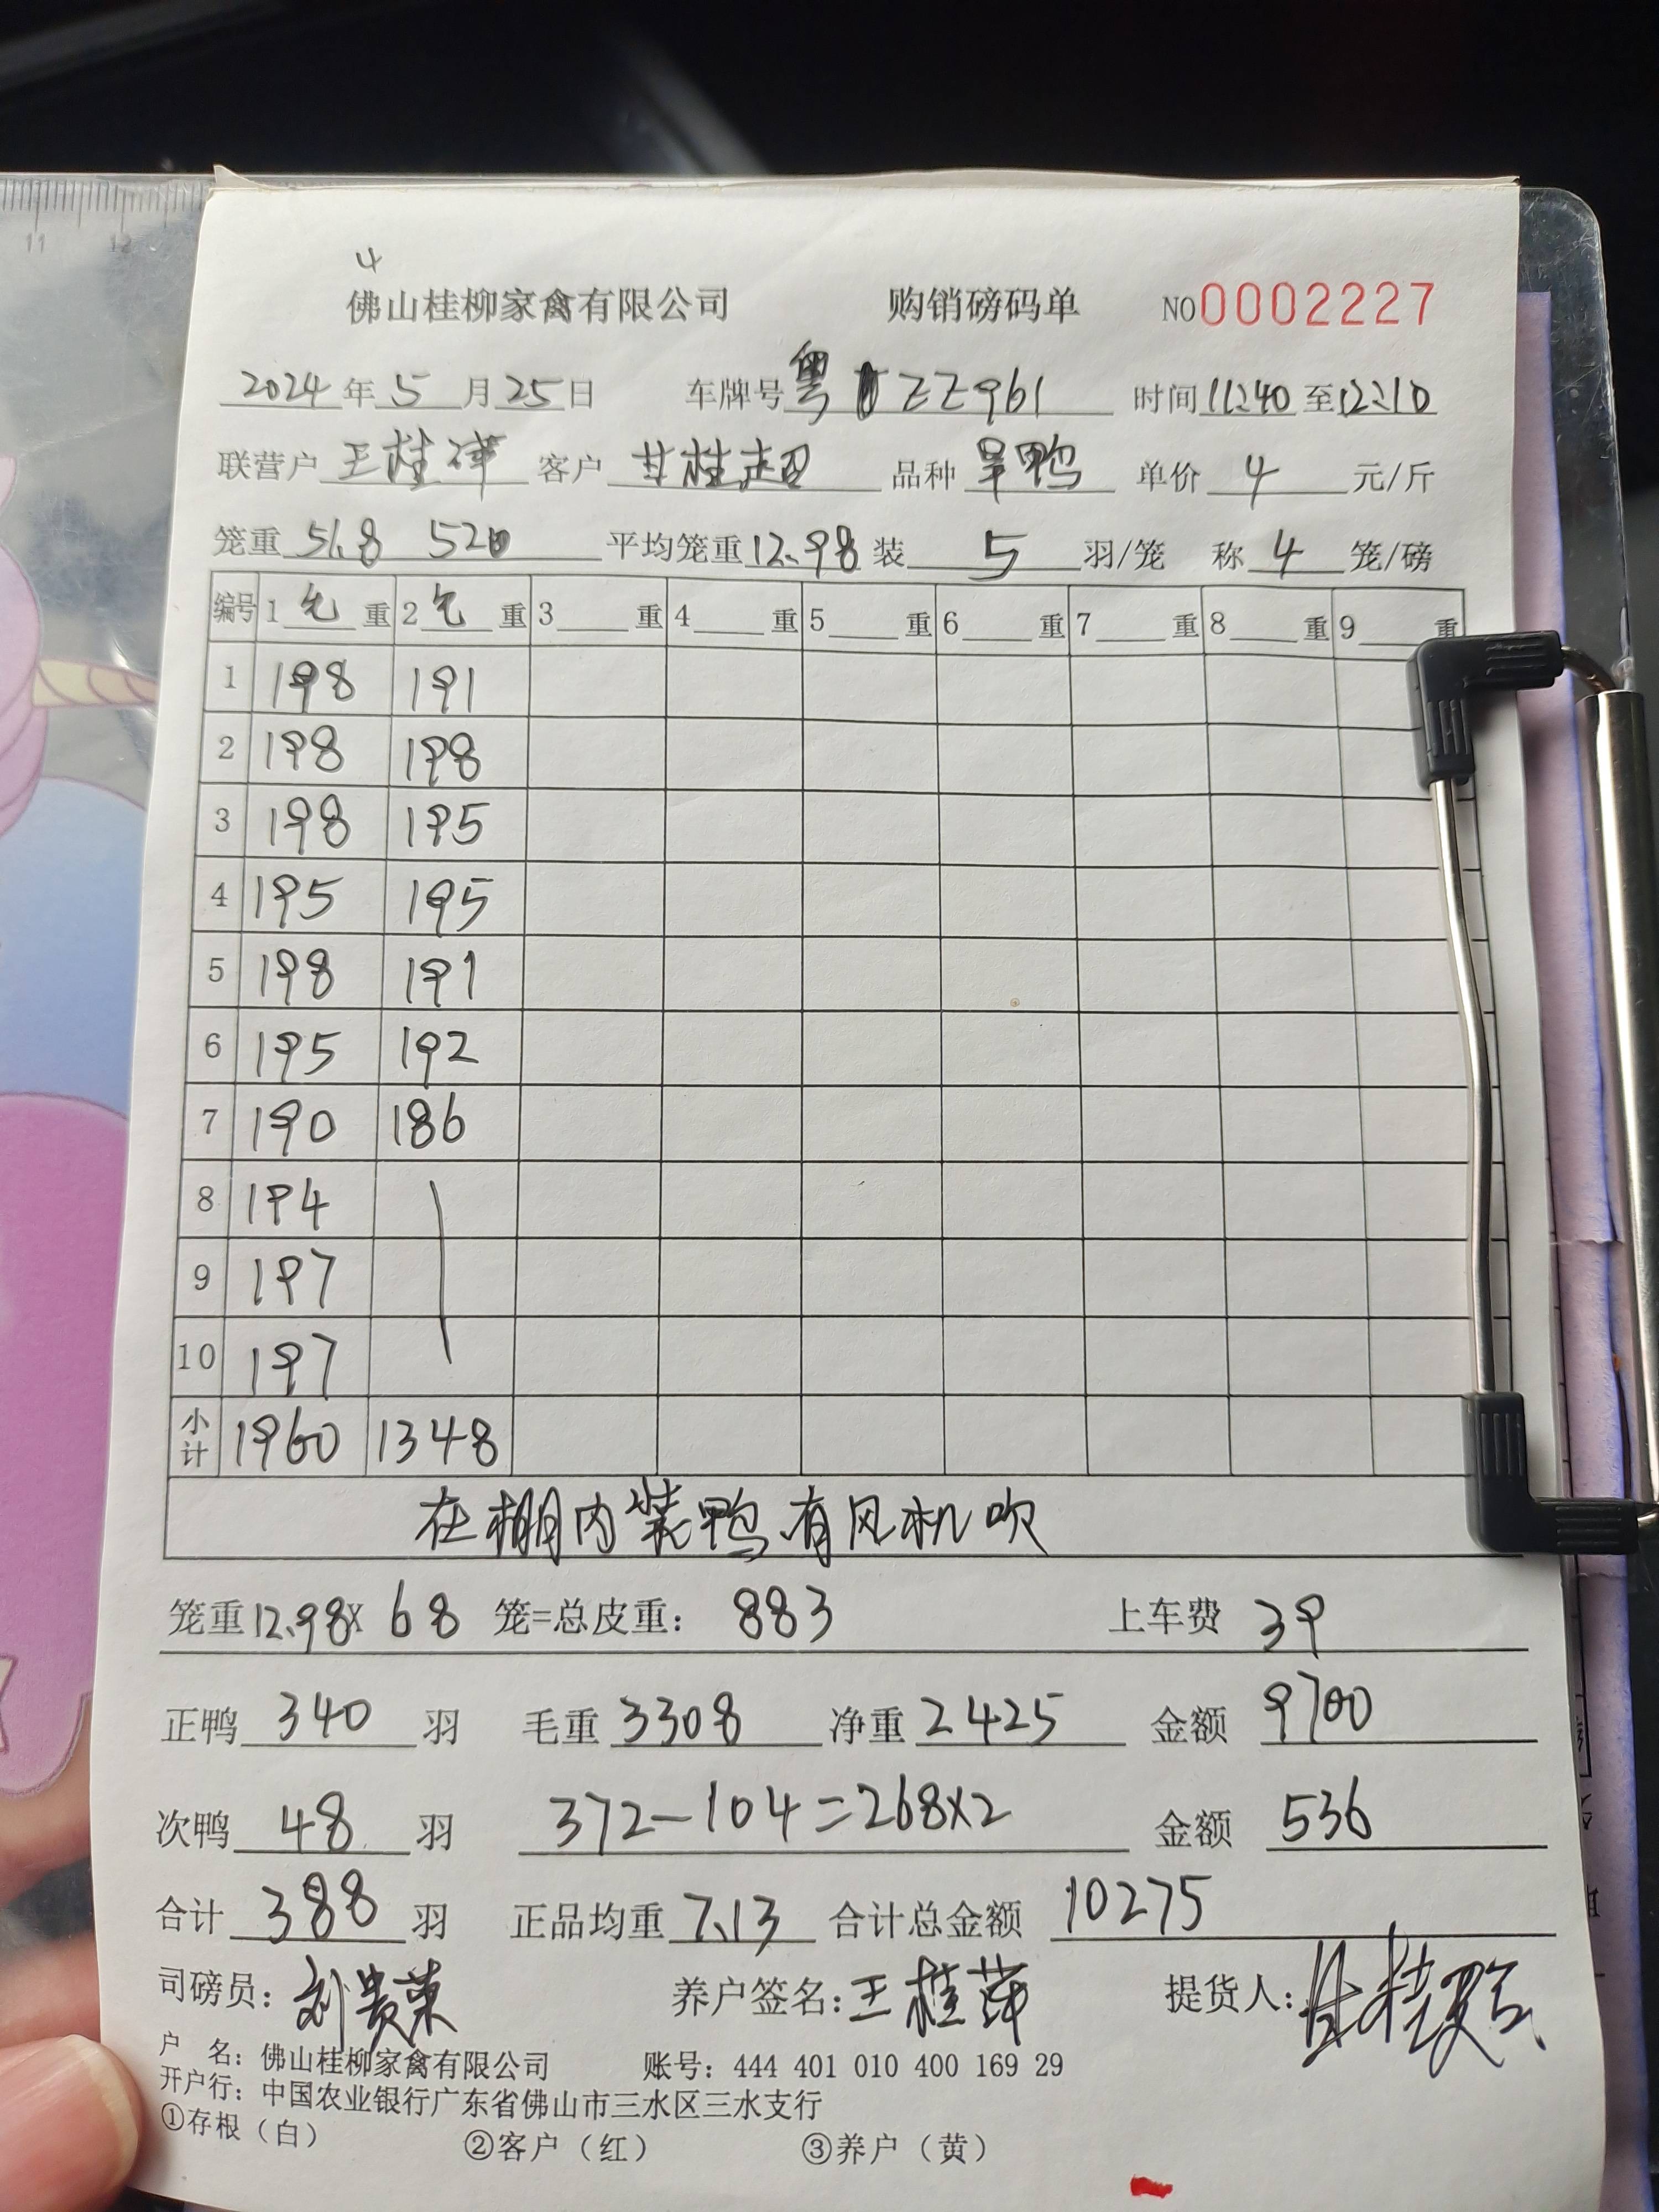 4
佛山桂柳家禽有限公司 购销磅码单 NO0002227
2024年5月25日 车牌号粤 ZZ961 时间11:40至12:10
联营户王桂萍 客户甘桂超 品种旱鸭 单价4元/斤
笼重51.8 520 平均笼重12.98装5羽/笼 称4笼/磅
编号 1毛重 2毛重 3重 4重 5重 6重 7重 8重 9重
1 198 191
2 198 198
3 198 195
4 195 195
5 198 191
6 195 192
7 190 186
8 194
9 197
10 197
小计 1960 1348
在棚内装鸭有风机吹
笼重12.98X68笼=总皮重：883 上车费39
正鸭340羽 毛重3308 净重2425 金额9700
次鸭48羽 372-104=268x2 金额536
合计388羽 正品均重7.13 合计总金额10275
司磅员：刘贵荣 养户签名：王桂萍 提货人：
户 名：佛山桂柳家禽有限公司 账号：444 401 010 400 169 29
开户行：中国农业银行广东省佛山市三水区三水支行
①存根（白） ②客户（红） ③养户（黄）
11 12